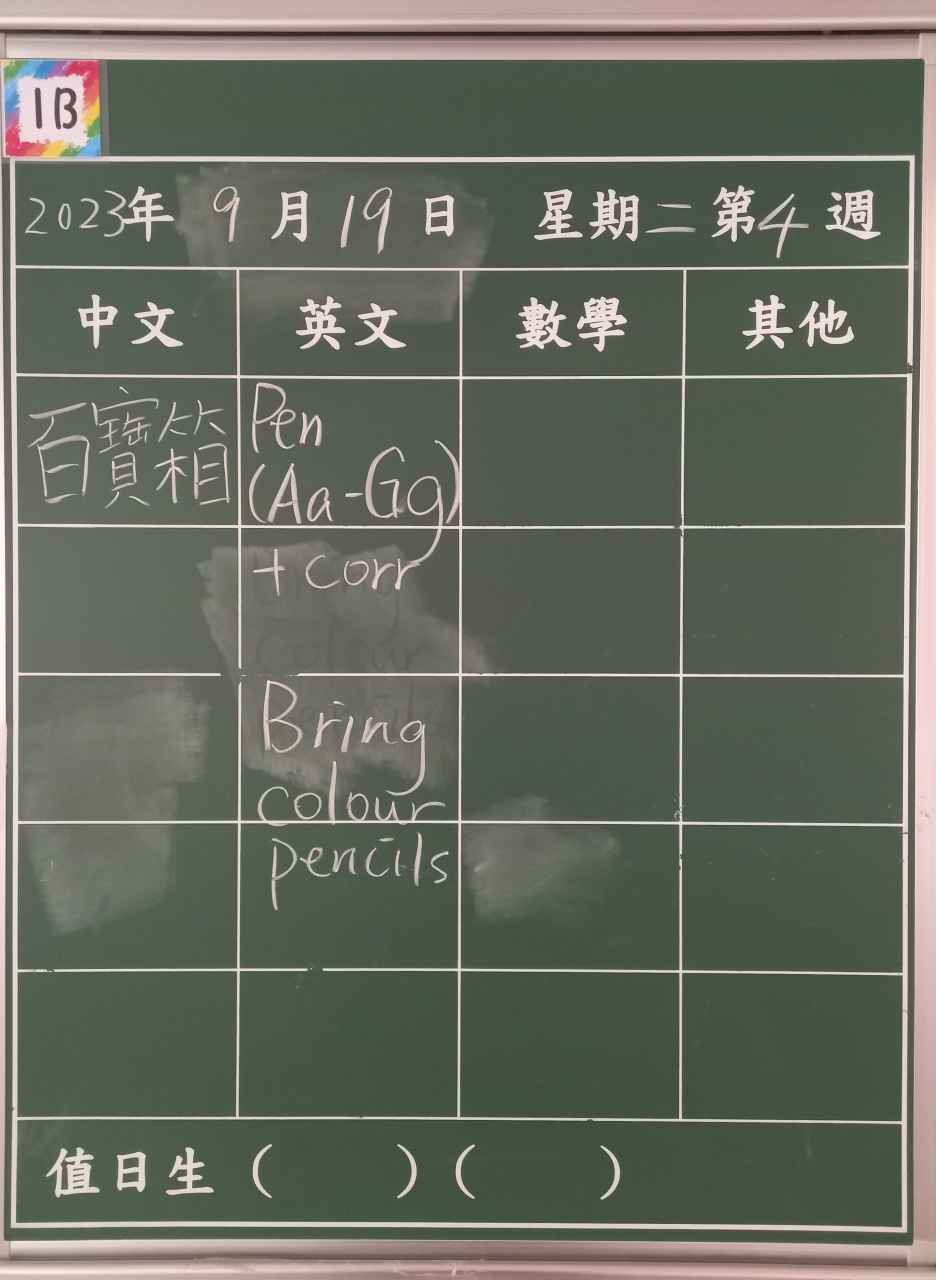 1B
2023年 9月19日 星期二 第4週
中文 英文 數學 其他
百寶箱
Pen
(Aa-Gg)
+corr
Bring
colour
pencils
值日生 ( ) ( )